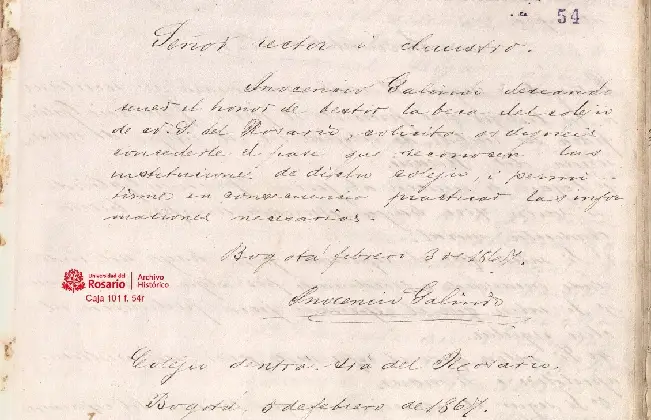 54
Señor rector i claustro.
Inocencio Galindo deseando
tener el honor de vestir la beca del colejio
de N. S. del Rosario, solicita os digneis
concederle el pase que reconocen las
instituciones de dicho colejio, i permi
tirme en consecuencia practicar las infor
maciones necesarias.
Bogotá febrero 3 de 1867.
Universidad del
Rosario
Archivo
Histórico
Caja 101 f. 54r
Inocencio Galindo
Colejio de Ntra. Sra del Rosario.
Bogotá 5 de febrero de 1867.